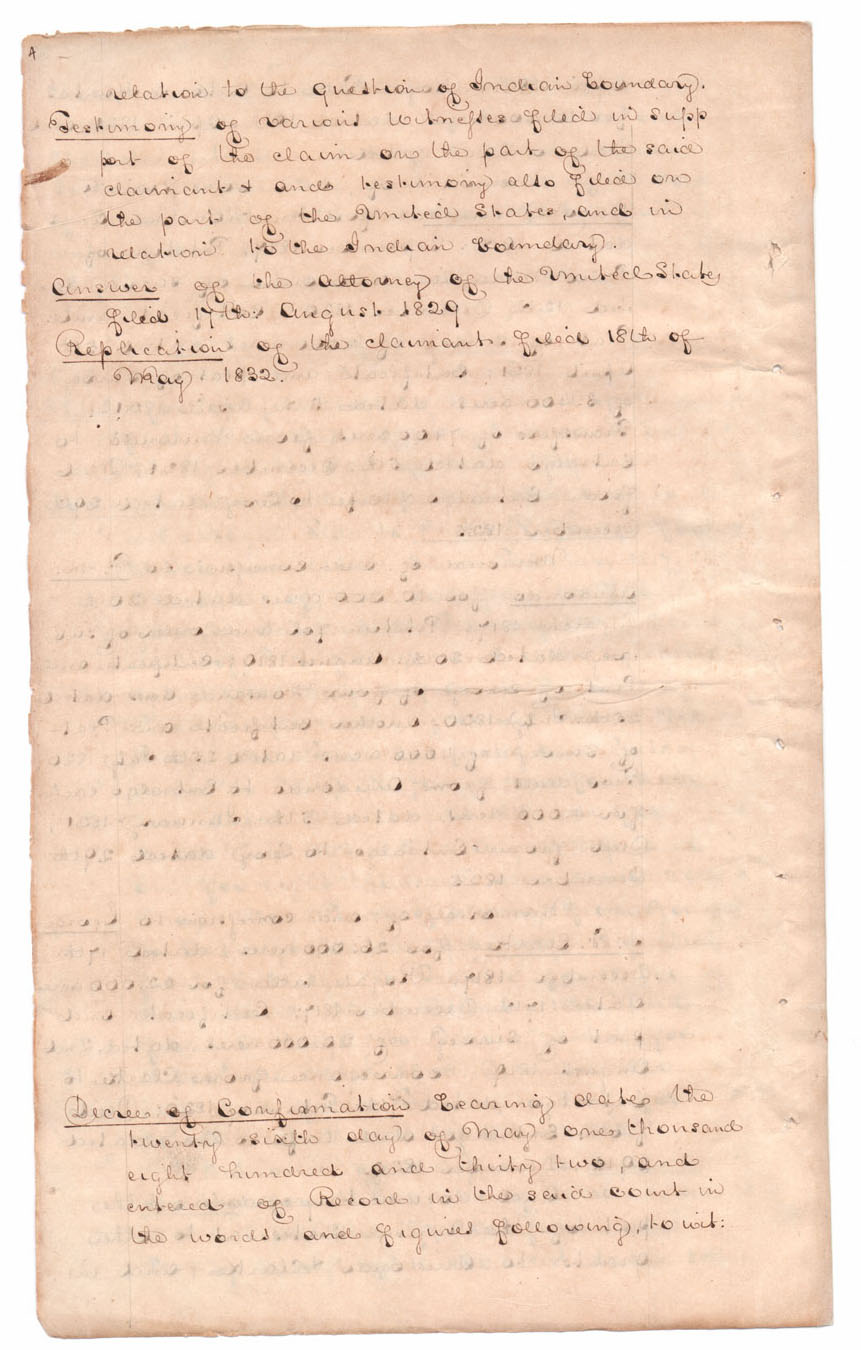 4
relation to the question of Indian boundary.
Testimony of various witnesses filed in supp
port of the claim on the part of the said
claimant & and testimony also filed on
the part of the United States, and in
relation to the Indian boundary.
Answer of the Attorney of the United States
filed 17th: August 1829
Replication of the claimant filed 18th of
May 1832.
Decree of Confirmation bearing date the
twenty sixth day of May one thousand
eight hundred and thirty two, and
entered of Record in the said court in
the words and figures following, to wit: